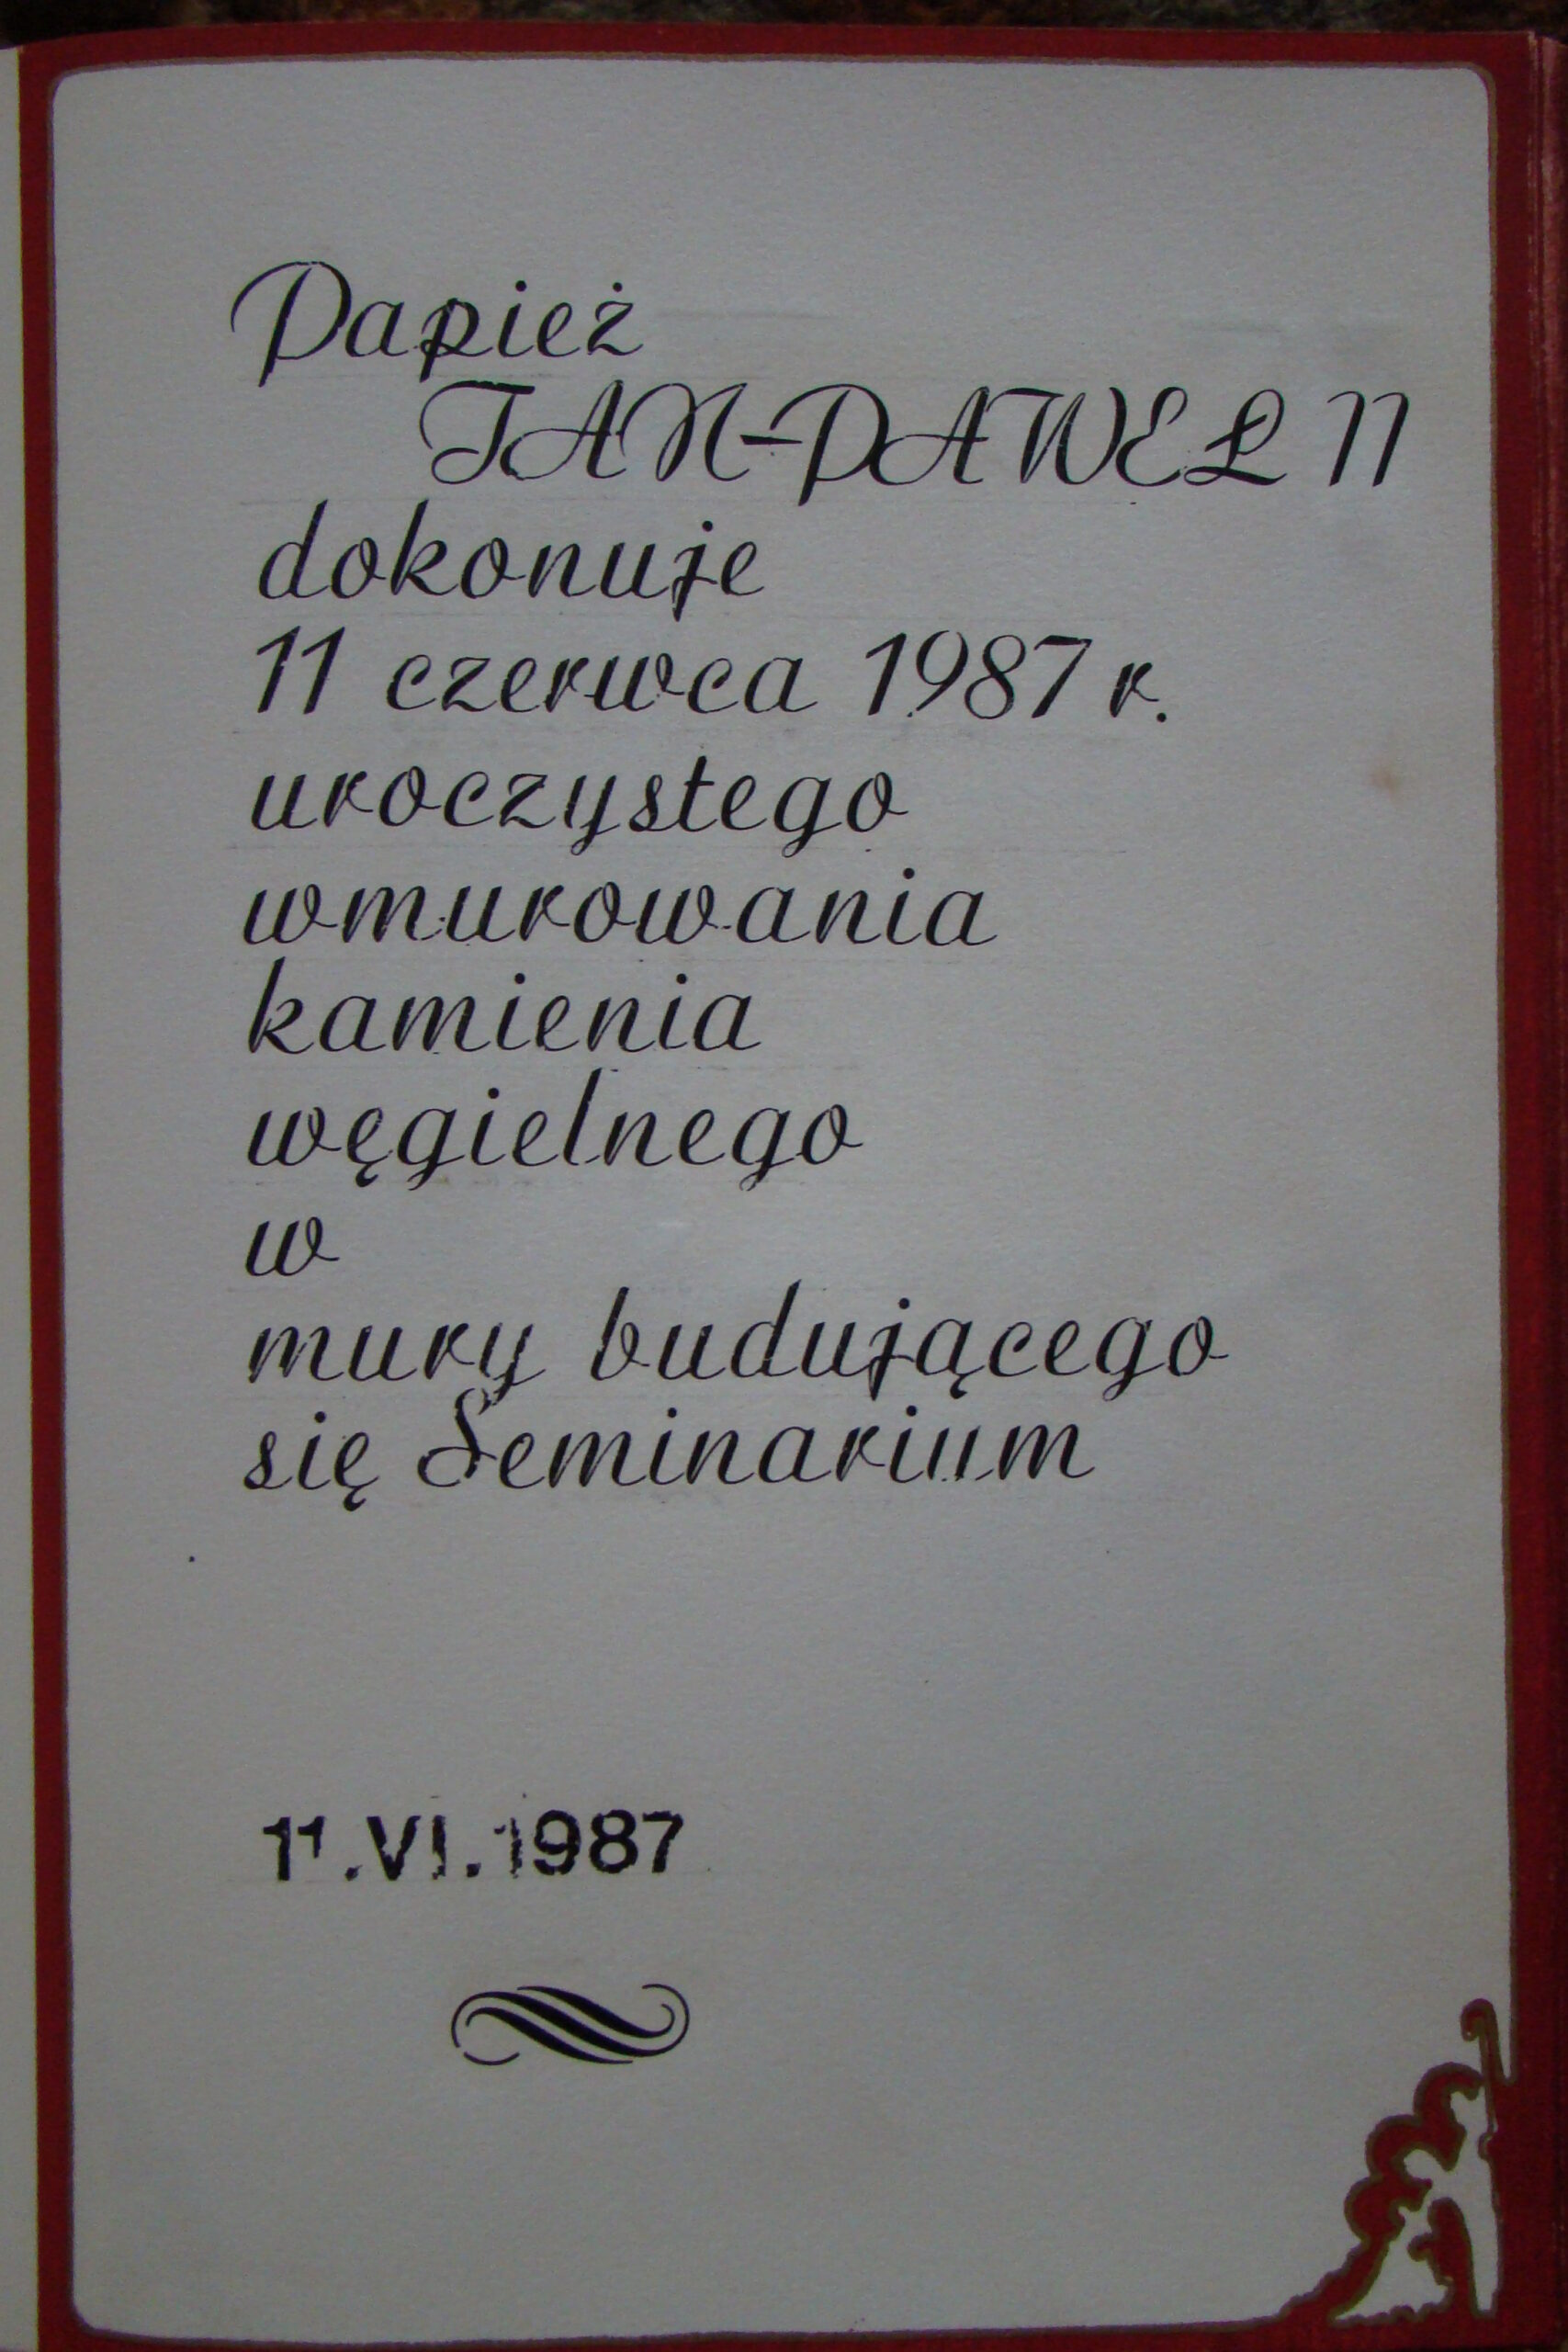 Papież
JAN-PAWEŁ II
dokonuje
11 czerwca 1987 r.
uroczystego
wmurowania
kamienia
węgielnego
w
mury budującego
się Seminarium
11.VI.1987